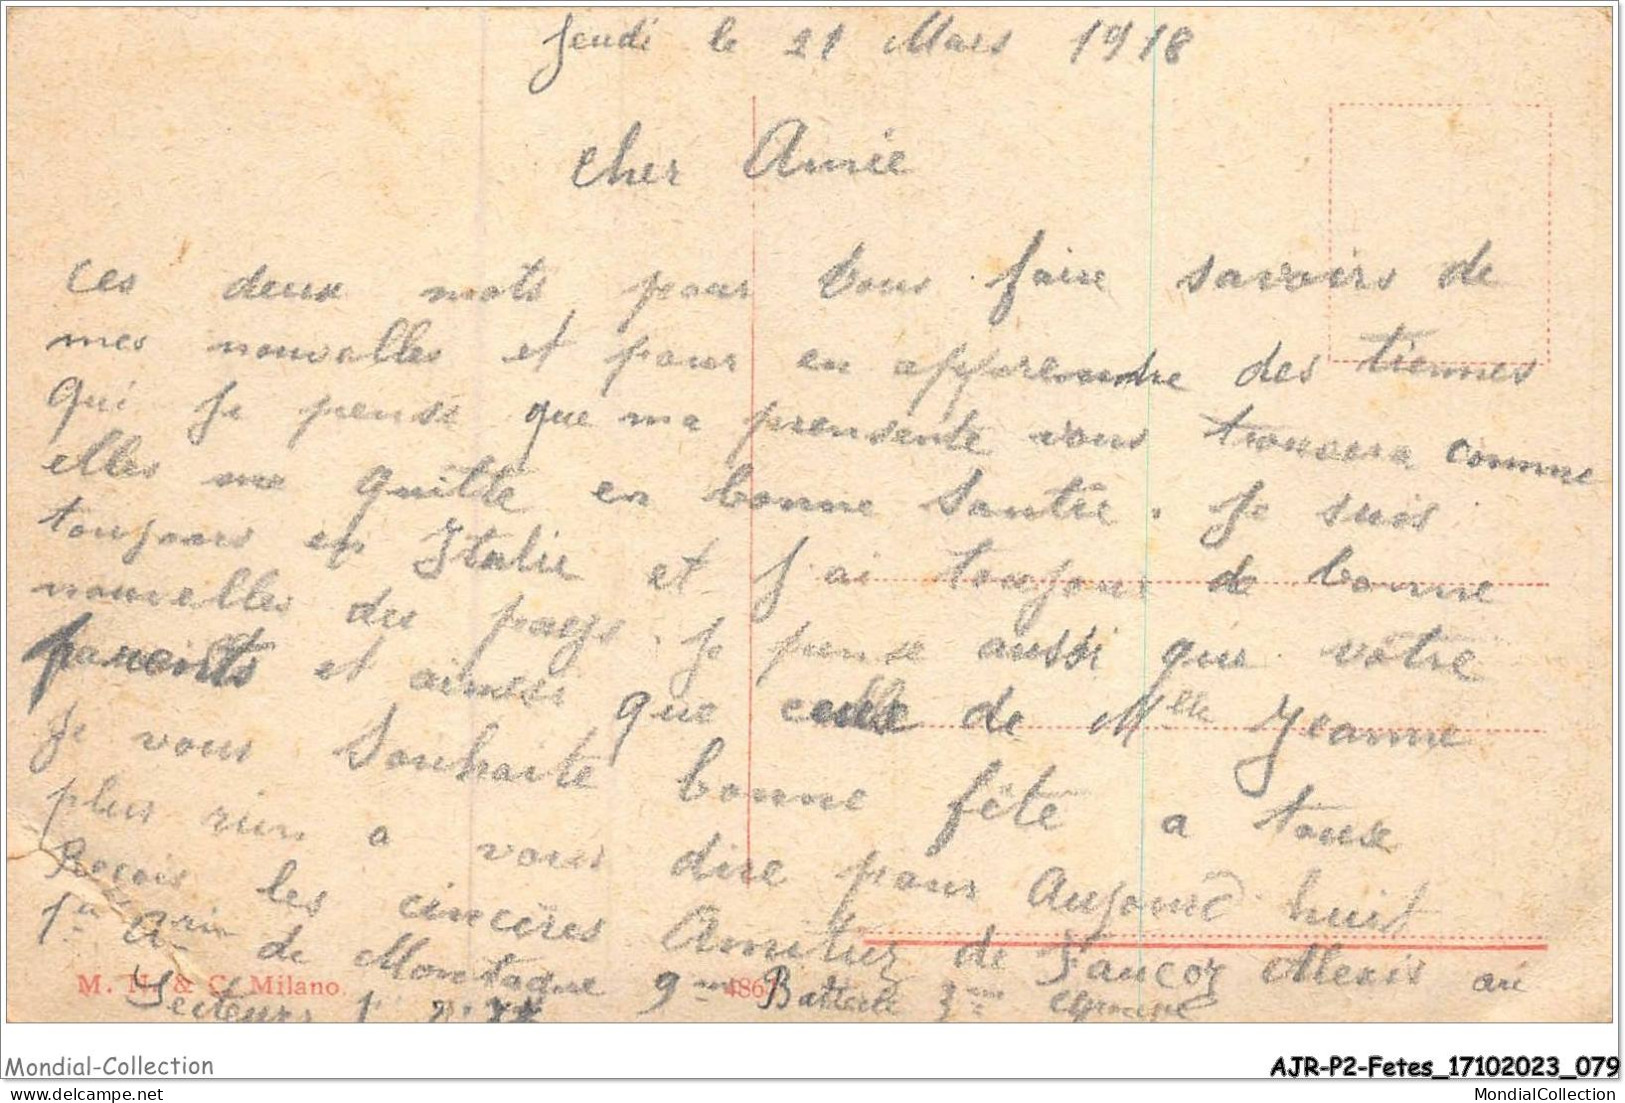 Jeudi le 21 Mars 1918
Cher Amie
Ces deux mots pour vous faire savoirs de
mes nouvelles et pour en apprendre des tiennes
Qui Je pense que ma prensente vous trouvera comme
elles me quitte en bonne Santée. Je suis
toujours en Italie et J'ai toujour de bonne
nouvelles du pays. Je pense aussi que votre
parents et ainsi que celle de Mlle Jeanne
Je vous Souhaite bonne fête a touse
plus rien a vous dire pour Aujourd huit
Reçois les cincères Amitiez de Faucoz Alexis au
1er de Montagne 9me Batterie 3me
Secteurs
M. & C. Milano.
Mondial-Collection
AJR-P2-Fetes_17102023_079
www.delcampe.net
MondialCollection